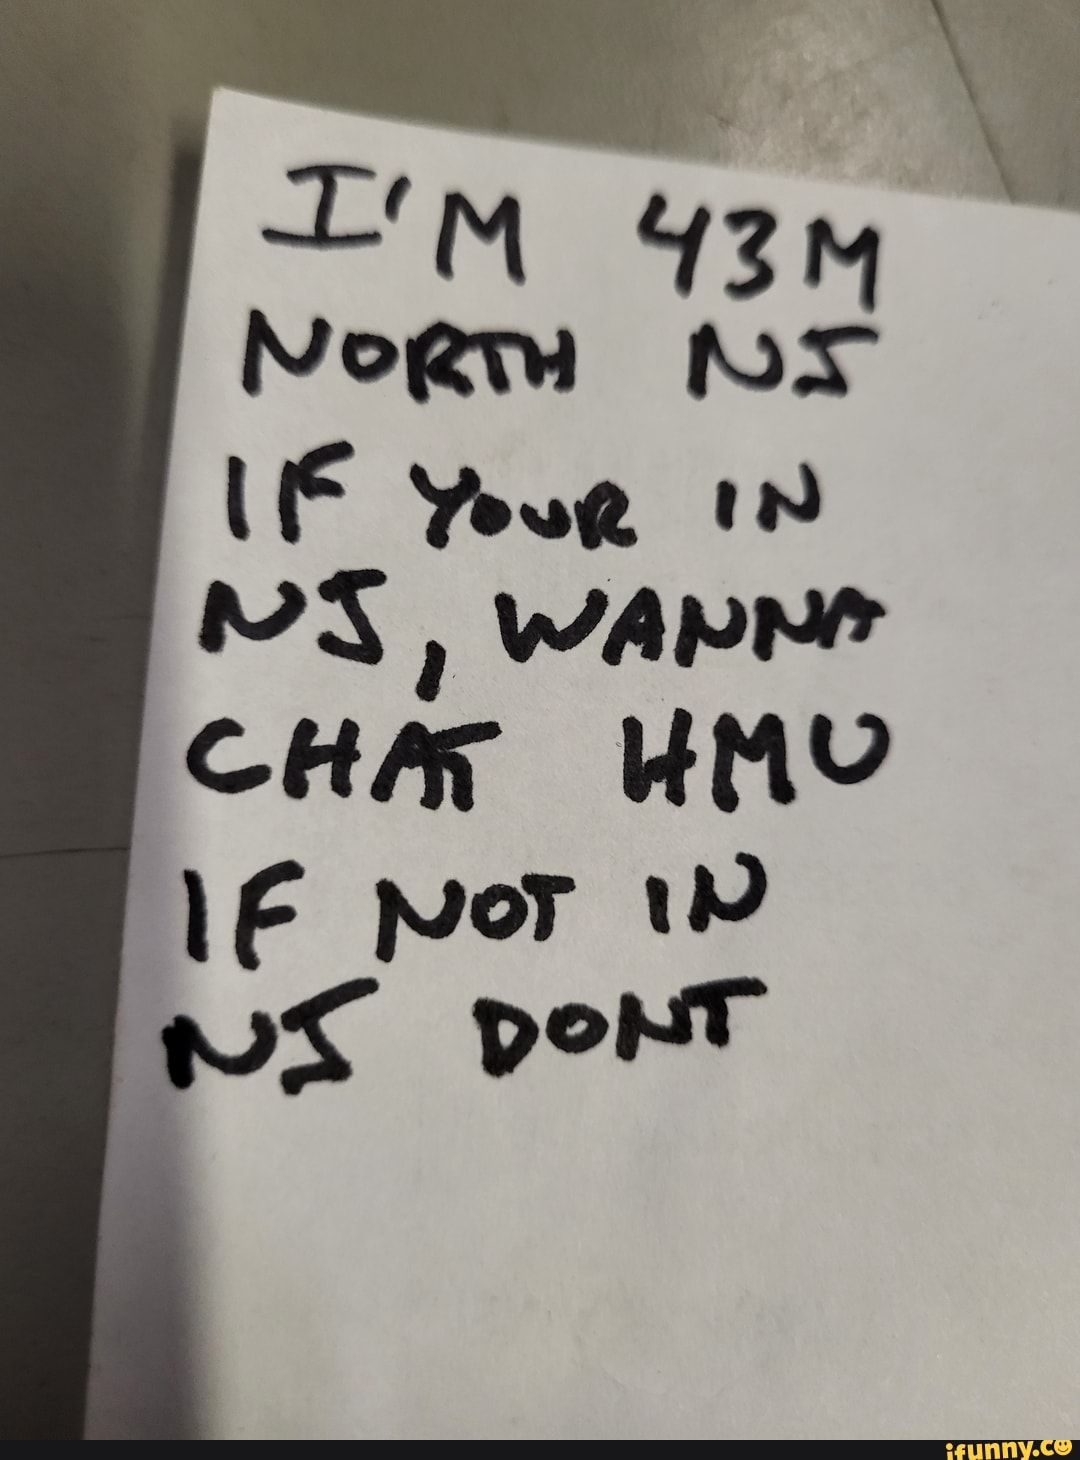 I'M 43M
NORTH NJ
IF YOUR IN
NJ, WANNA
CHAT HMU
IF NOT IN
NJ DONT
ifunny.co